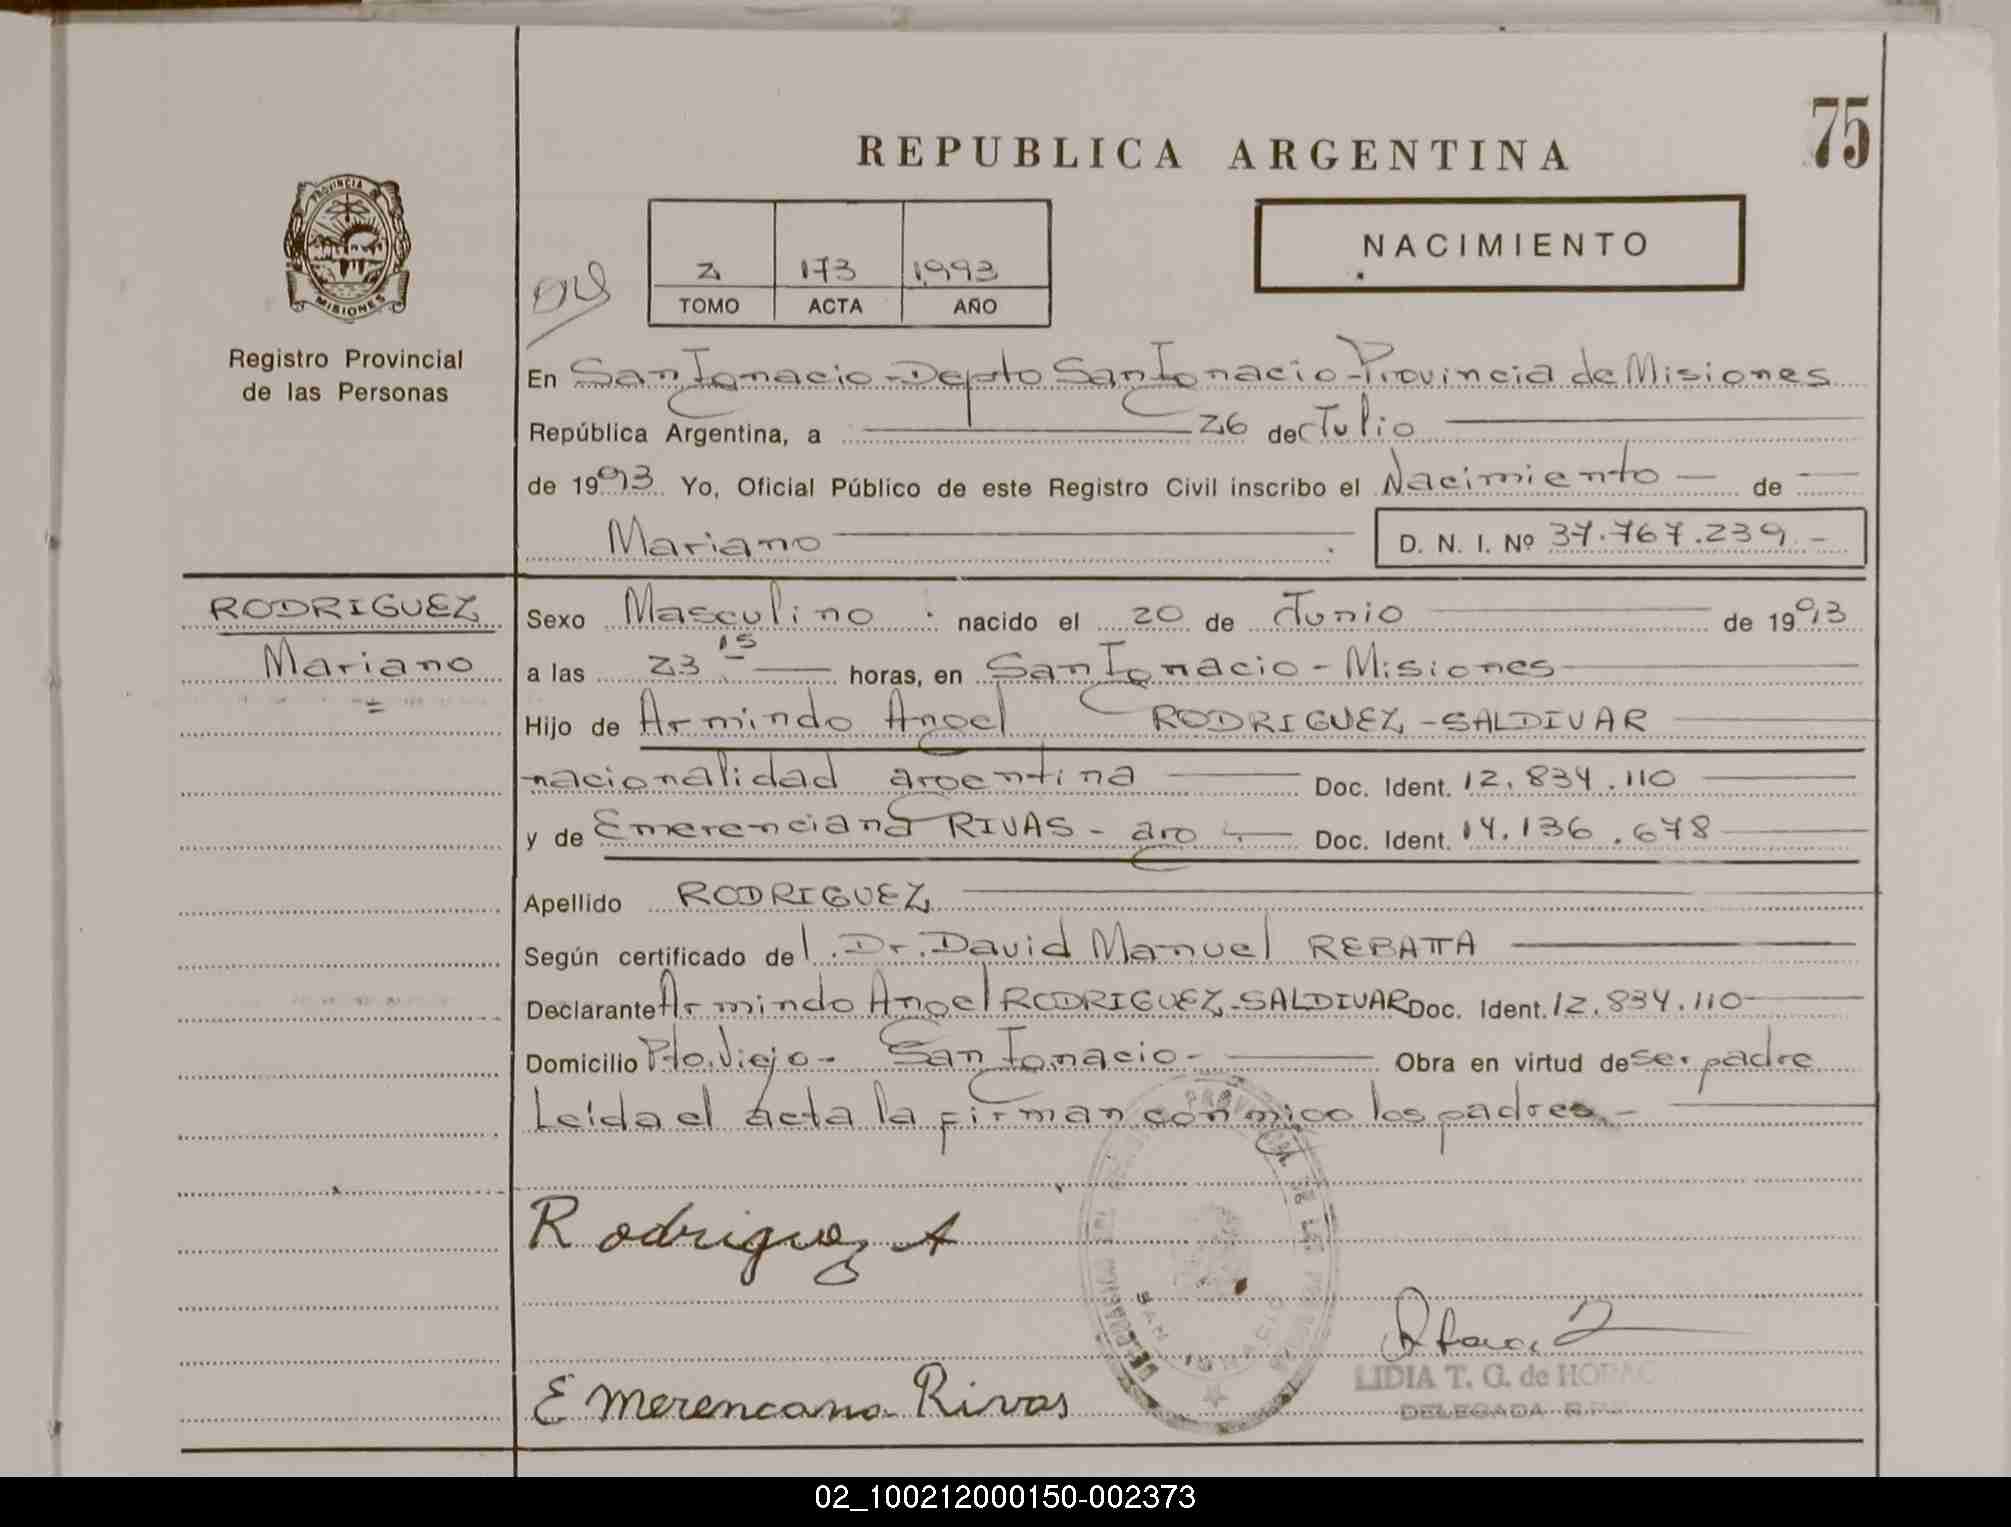 75
REPUBLICA ARGENTINA
NACIMIENTO
PROVINCIA DE
MISIONES
Registro Provincial
de las Personas
2 173 1993
TOMO ACTA AÑO
En San Ignacio - Depto San Ignacio - Provincia de Misiones
República Argentina, a 26 de Julio
de 1993 Yo, Oficial Público de este Registro Civil inscribo el Nacimiento — de —
Mariano D. N. I. Nº 37.767.239.-
RODRIGUEZ
Mariano
Sexo Masculino nacido el 20 de Junio de 1993
a las 23 15 horas, en San Ignacio - Misiones
Hijo de Armindo Angel RODRIGUEZ - SALDIVAR
nacionalidad argentina Doc. Ident. 12.834.110
y de Emerenciana RIVAS - arg. Doc. Ident. 14.136.678
Apellido RODRIGUEZ
Según certificado del Dr. David Manuel REBATTA
Declarante Armindo Angel RODRIGUEZ - SALDIVAR Doc. Ident. 12.834.110
Domicilio Pto. Viejo - San Ignacio - Obra en virtud de ser padre
Leída el acta la firman conmigo los padres.-
Rodriguez A
LIDIA T. G. de
DELEGADA
Emerencana Rivas
02_100212000150-002373